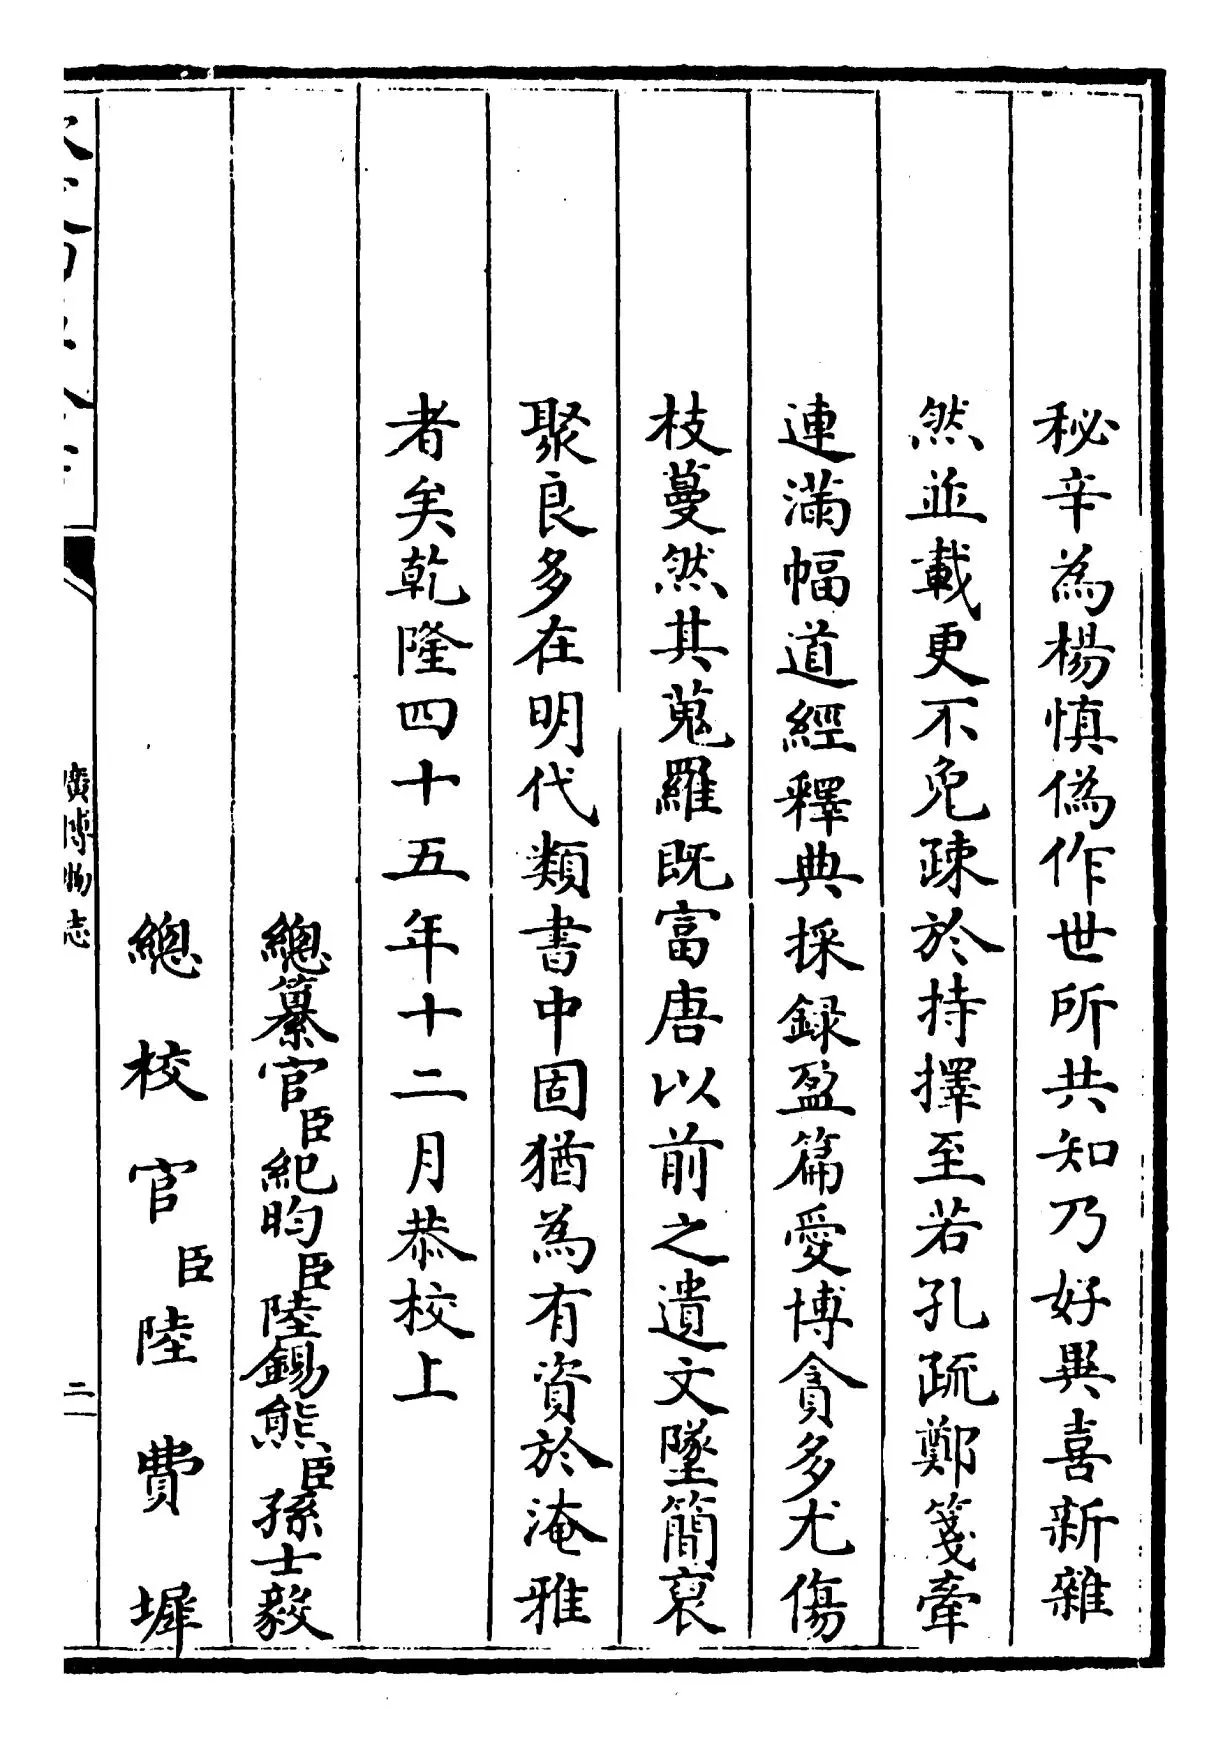 秘辛為楊慎偽作世所共知乃好異喜新雜
然並載更不免疎於持擇至若孔疏鄭箋牽
連滿幅道經釋典採録盈篇愛博貪多尤傷
枝蔓然其蒐羅既富唐以前之遺文墜簡裒
聚良多在明代類書中固猶為有資於淹雅
者矣乾隆四十五年十二月恭校上
總纂官臣紀昀臣陸錫熊臣孫士毅
總校官臣陸費墀
廣博物志
二